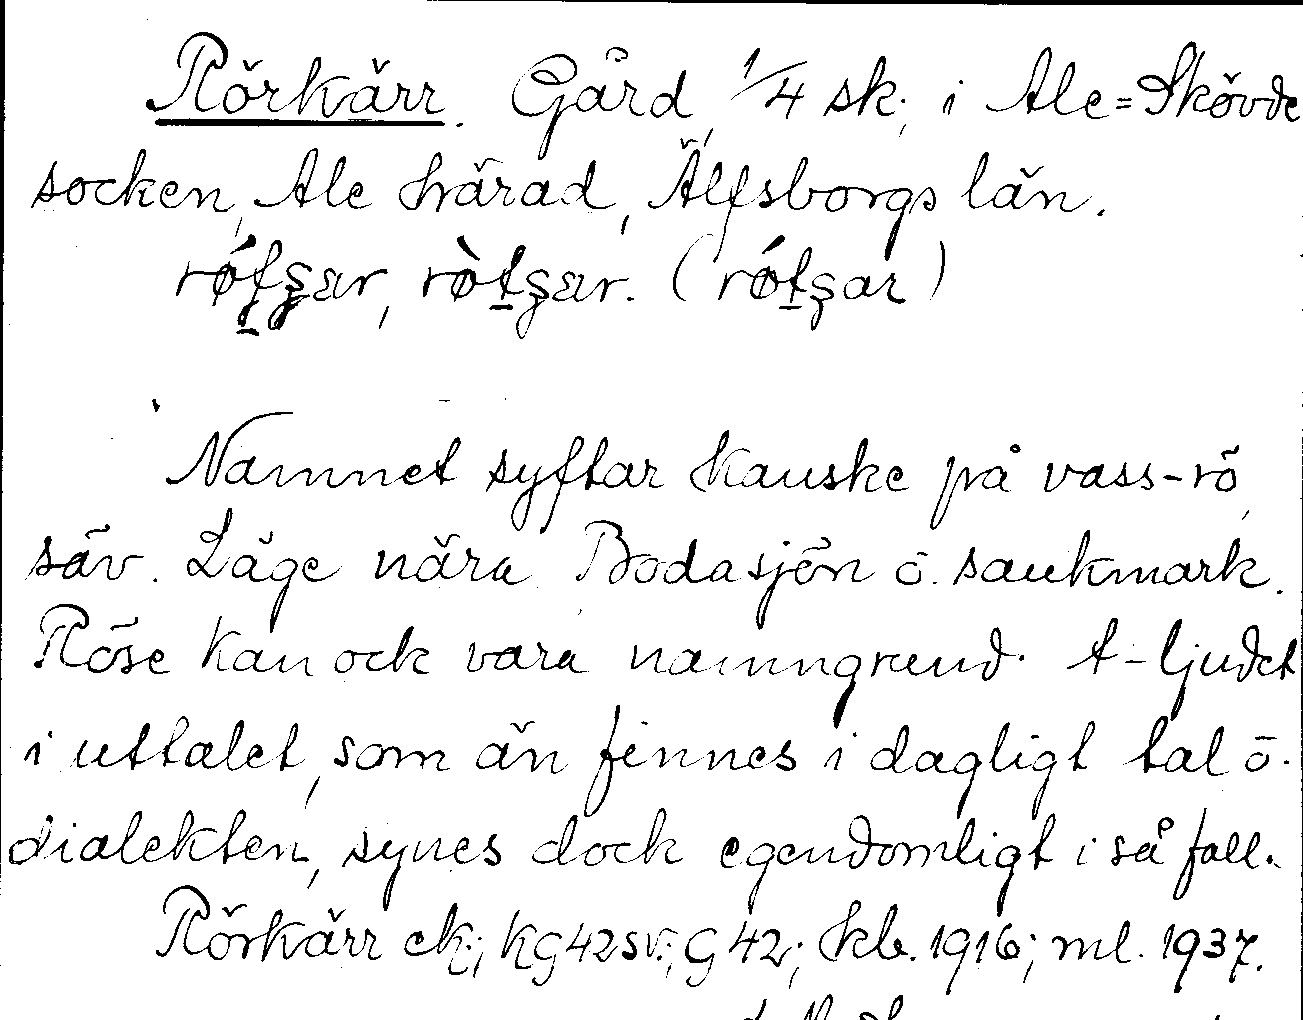 Rörkärr. Gård, 1/4 sk; i Ale=Skövde
socken, Ale härad, Älfsborgs län.
Namnet syftar kanske på vass-rö,
säv. Läge nära Bodasjön o. sankmark.
Röse kan ock vara namngrund. t-ljudet
i uttalet, som än finnes i dagligt tal o.
dialekten, synes dock egendomligt i så fall.
Rörkärr ek; KG42sv.; G 42; kb. 1916; ml. 1937.